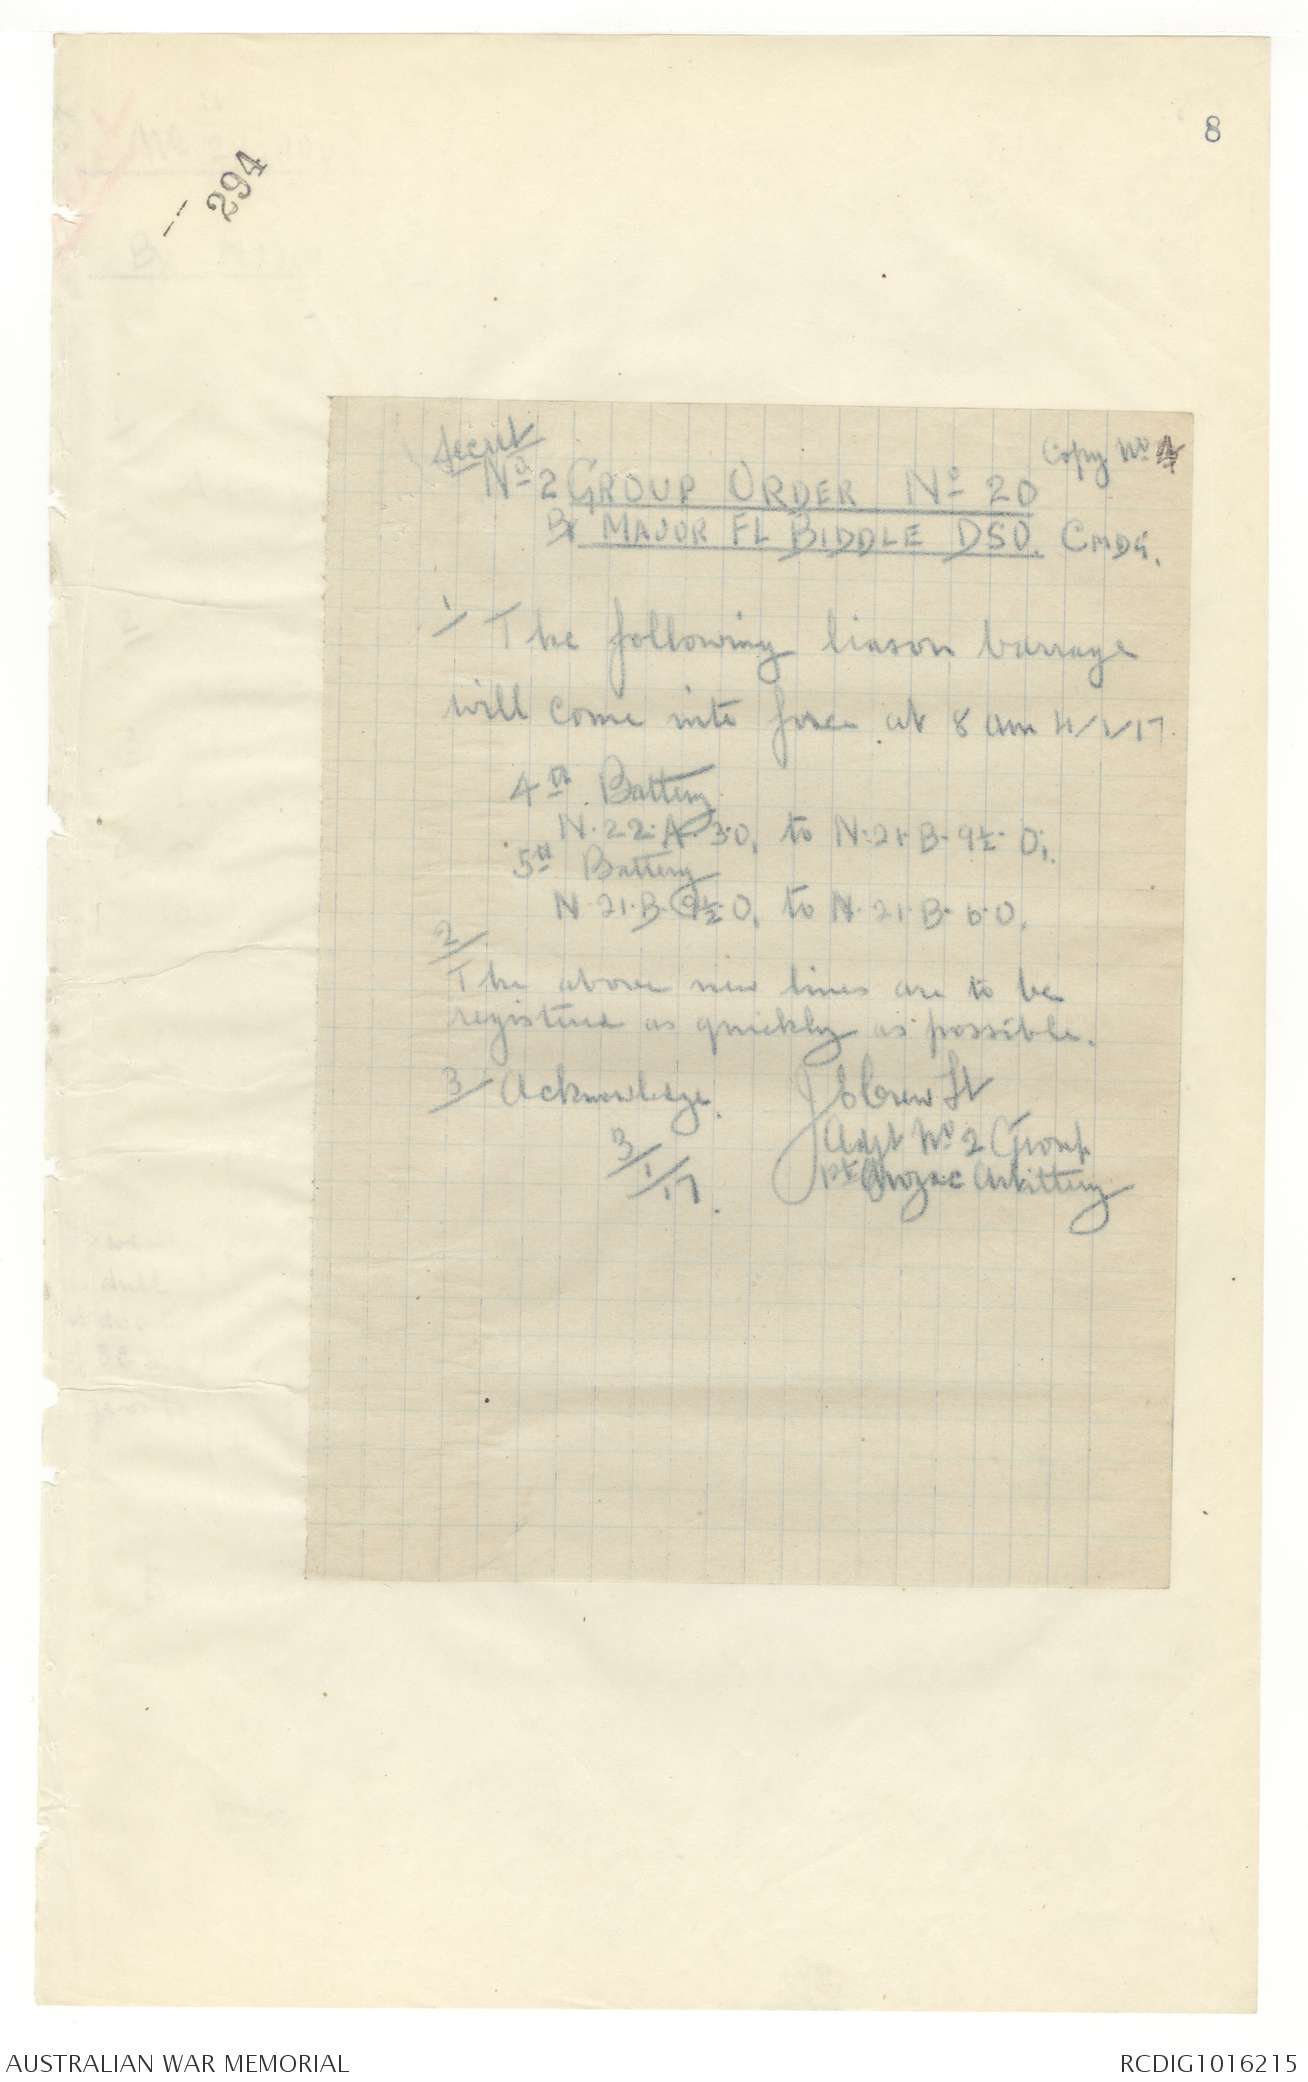 8
294
Secret
Copy No 4
No 2 GROUP ORDER No 20
BY MAJOR FL BIDDLE DSO. CMDG.
1/ The following liason barrage
will come into force at 8 am 4/1/17.
4th Battery
N.22.A.3.0, to N.21.B.9½.0,.
5th Battery
N.21.B.9½.0, to N.21.B.6.0.
2/
The above new lines are to be
registered as quickly as possible.
3/ Acknowledge.
J E Crew Lt
Adjt No 2 Group
1st Anzac Artillery
3/1/17.
AUSTRALIAN WAR MEMORIAL
RCDIG1016215